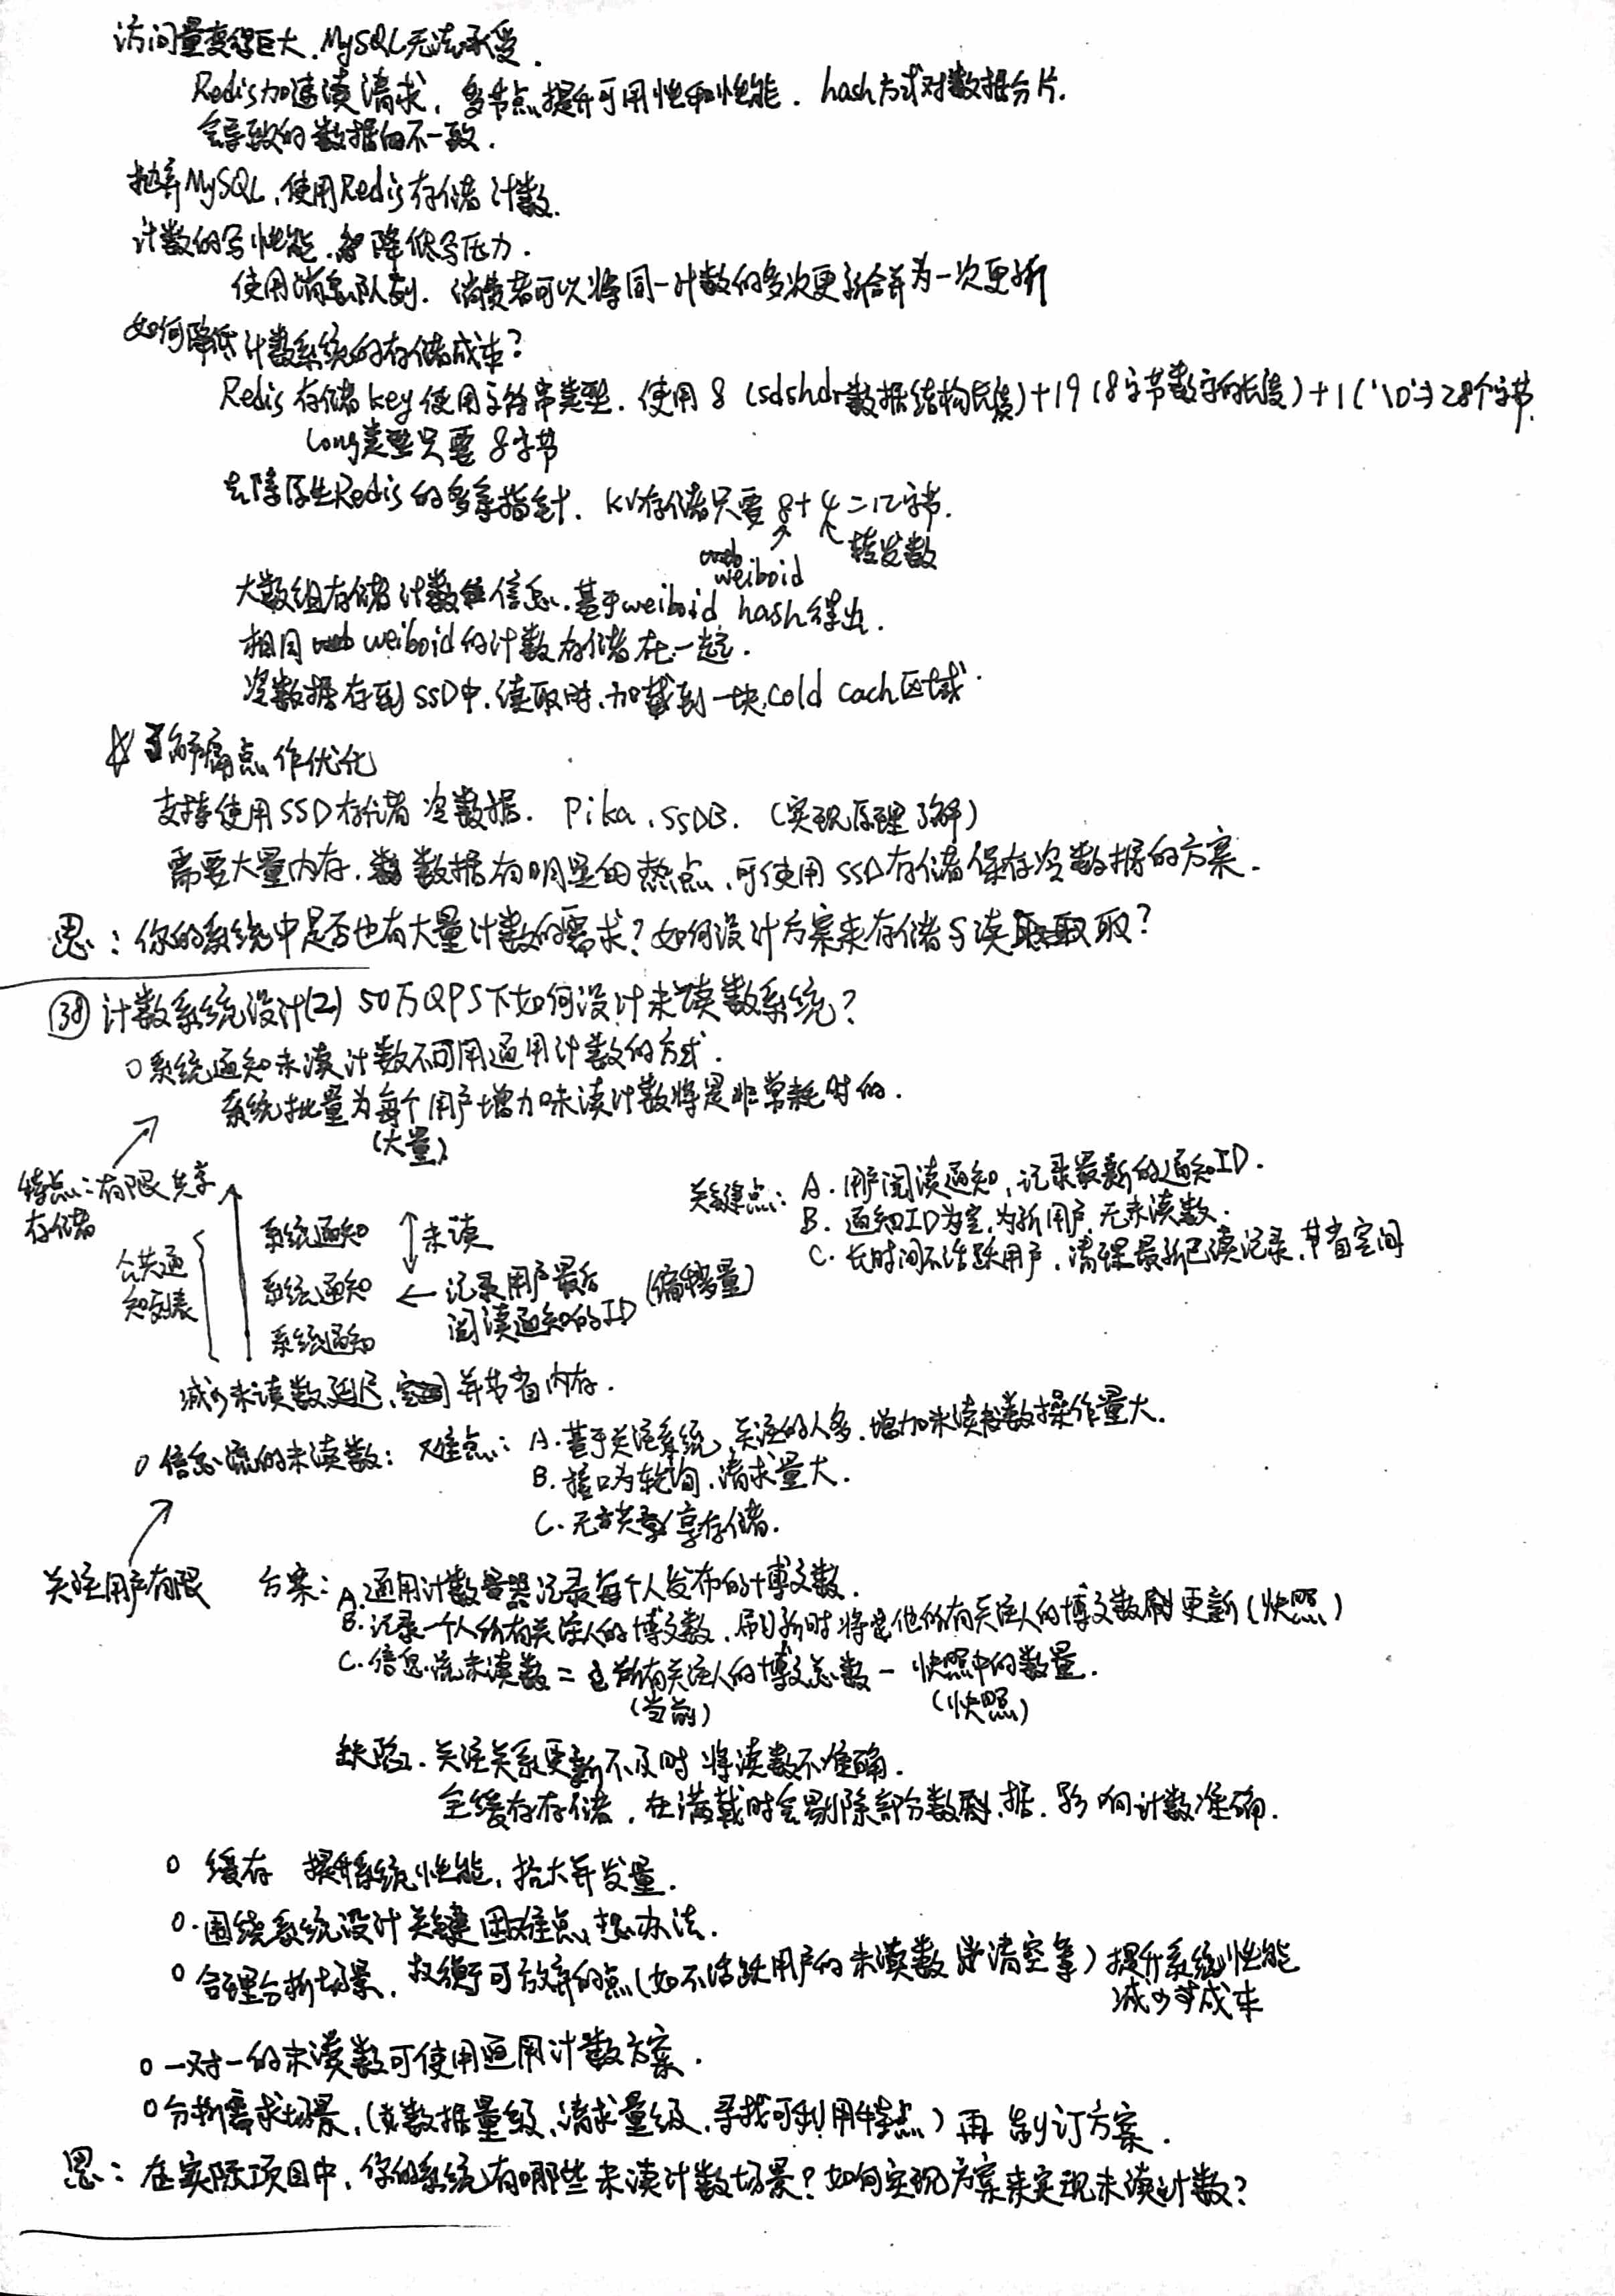 访问量变得巨大.MySQL无法承受.
Redis加速读请求,多节点提升可用性和性能.hash方式对数据分片.
会导致的数据的不一致.
抛弃MySQL,使用Redis存储计数.
计数的写性能.降低写压力.
使用消息队列.消费者可以将同一计数的多次更新合并为一次更新
如何降低计数系统的存储成本?
Redis存储key使用字符串类型.使用8(sdshdr数据结构长度)+19(8字节数字的长度)+1('\0')=28个字节.
Long类型只要8字节
去除原生Redis的多余指针.KV存储只要8+4=12字节.
weiboid
转发数
大数组存储计数信息.基于weiboid hash得出.
相同weiboid的计数存储在一起.
冷数据存到SSD中.读取时.加载到一块cold cach区域.
了解痛点作优化
支持使用SSD存储冷数据.Pika、SSDB.(实现原理了解)
需要大量内存.数据有明显的热点,可使用SSD存储保存冷数据的方案.
思:你的系统中是否也有大量计数的需求?如何设计方案来存储与读取?
㊳计数系统设计(2)50万QPS下如何设计未读数系统?
o系统通知未读计数不可用通用计数的方式.
系统批量为每个用户增加未读计数将是非常耗时的.
(大量)
特点:有限共享
存储
公共通
知列表
系统通知
系统通知
系统通知
未读
←记录用户最后
阅读通知的ID(偏移量)
关键点:A.用户阅读通知,记录最新的通知ID.
B.通知ID为空,为新用户,无未读数.
C.长时间不活跃用户,清理最新已读记录,节省空间
减少未读数延迟,并节省内存.
o信息流的未读数:难点:A.基于关注系统,关注的人多.增加未读数操作量大.
B.接口为轮询,请求量大.
C.无共享存储.
关注用户有限
方案:A.通用计数器记录每个人发布的博文数.
B.记录一个人所有关注人的博文数,刷新时将他所有关注人的博文数更新(快照)
C.信息流未读数=所有关注人的博文总数-快照中的数量.
(当前)
(快照)
缺陷.关注关系更新不及时将读数不准确.
全缓存存储,在满载时会剔除部分数据.影响计数准确.
o 缓存 提升系统性能,抬大并发量.
o.围绕系统设计关键困难点想办法.
o 合理分析场景,权衡可放弃的点(如不活跃用户的未读数清空等)提升系统性能
减少成本
o一对一的未读数可使用通用计数方案.
o分析需求场景,(数据量级,请求量级,寻找可利用特点)再制订方案.
思:在实际项目中,你的系统有哪些未读计数场景?如何实现方案来实现未读计数?